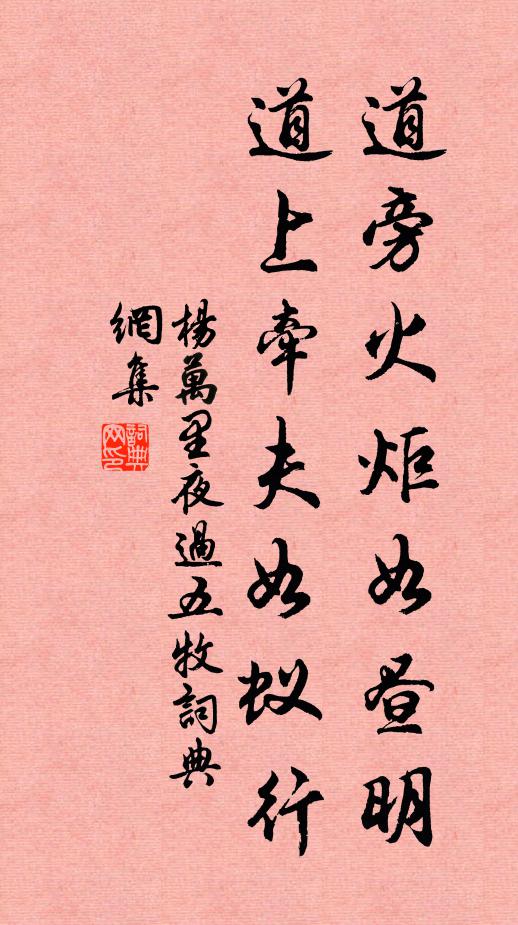 道旁火炬如昼明
道上牵夫如蚁行
楊萬里夜過五牧詞典
網集
詞典网印